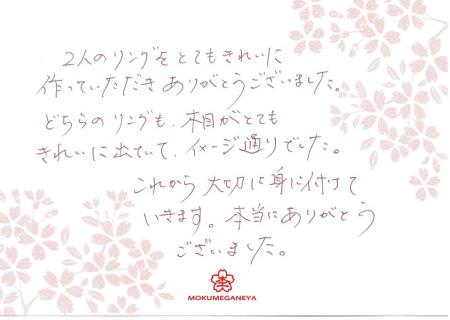 2人のリングをとてもきれいに
作っていただきありがとうございました。
どちらのリングも、木目がとても
きれいに出ていて、イメージ通りでした。
これから大切に身に付けて
いきます。本当にありがとう
ございました。
MOKUMEGANEYA